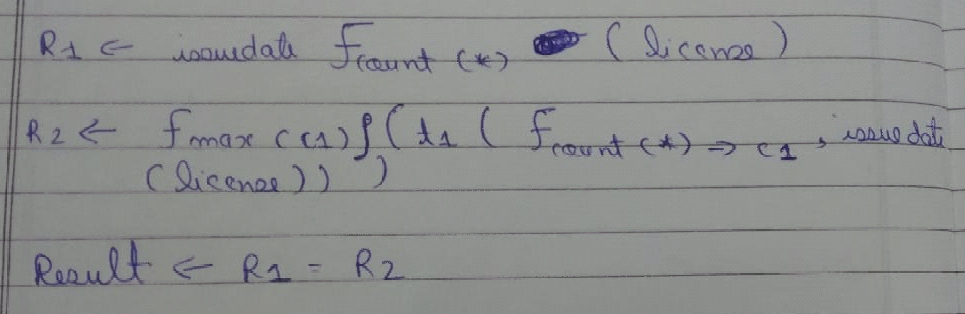 R1 ← issuedate f count (*) (license)
R2 ← f max (c1) ρ (t1 ( f count (*) ⇒ c1 , issue date
(license)) )
Result ← R1 = R2